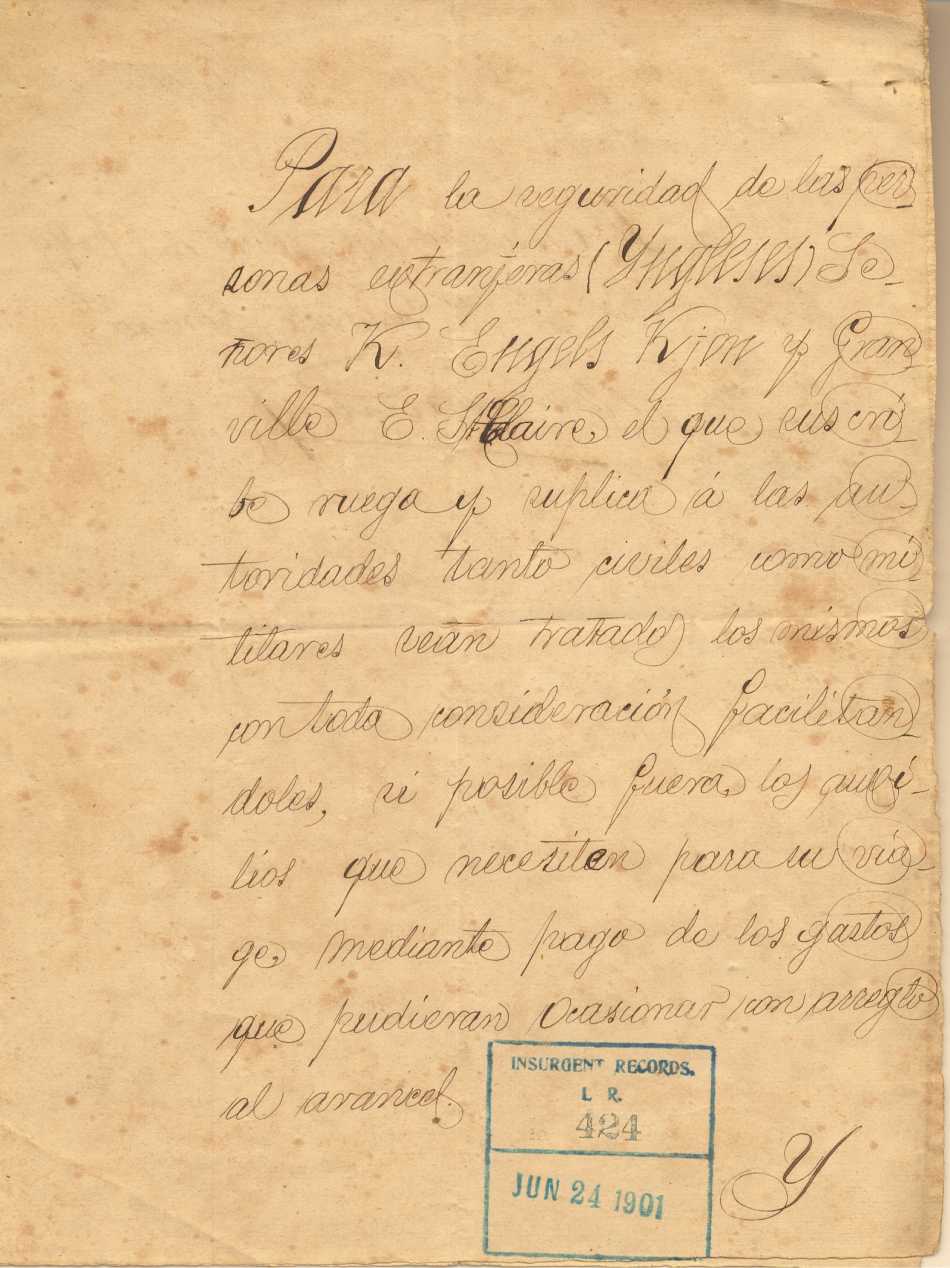 Para la seguridad de las per-
sonas extranjeras (Yngleses) Se-
ñores K. Engels Kjon y Gran-
ville E. St Claire, el que suscri-
be ruega y suplica á las au-
toridades tanto civiles como mi-
litares sean tratados los mismos
con toda consideración facilitan-
doles, si posible fuera, los auxi-
lios que necesiten para su via-
ge, mediante pago de los gastos
que pudieran ocasionar con arreglo
al arancel.
INSURGENT RECORDS.
L R.
424
JUN 24 1901
Y